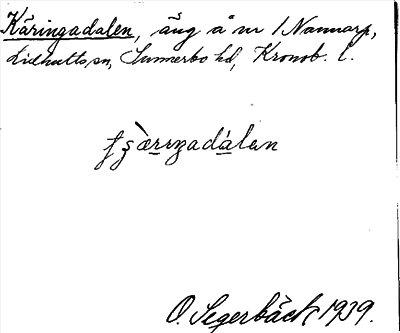 Käringadalen, äng å nr 1 Nannarp,
Lidhults sn, Sunnerbo hd, Kronob. l.
O. Segerbäck 1939.